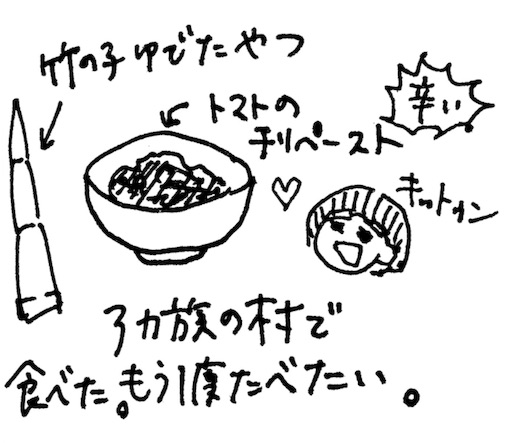 竹の子ゆでたやつ
トマトの
チリペースト
辛い
キットゥン
アカ族の村で
食べた。もう1度たべたい。